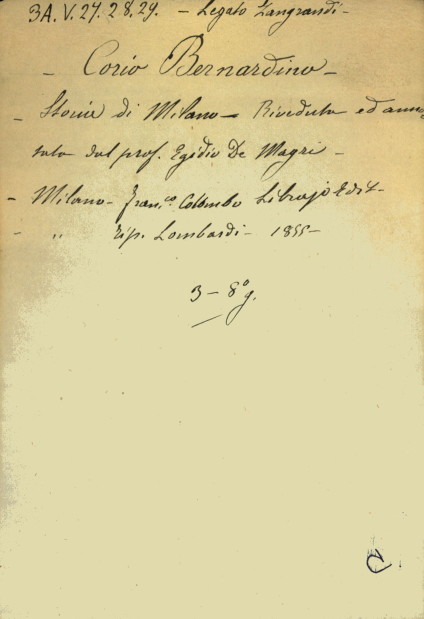 3A. V. 27. 28. 29. - Legato Zangrandi -
- Corio Bernardino -
- Storia di Milano - Riveduta ed anno-
tata dal prof. Egidio De Magri -
- Milano - Fran.co Colombo Librajo Edit -
- " Tip. Lombardi - 1855 -
3 - 8° g.